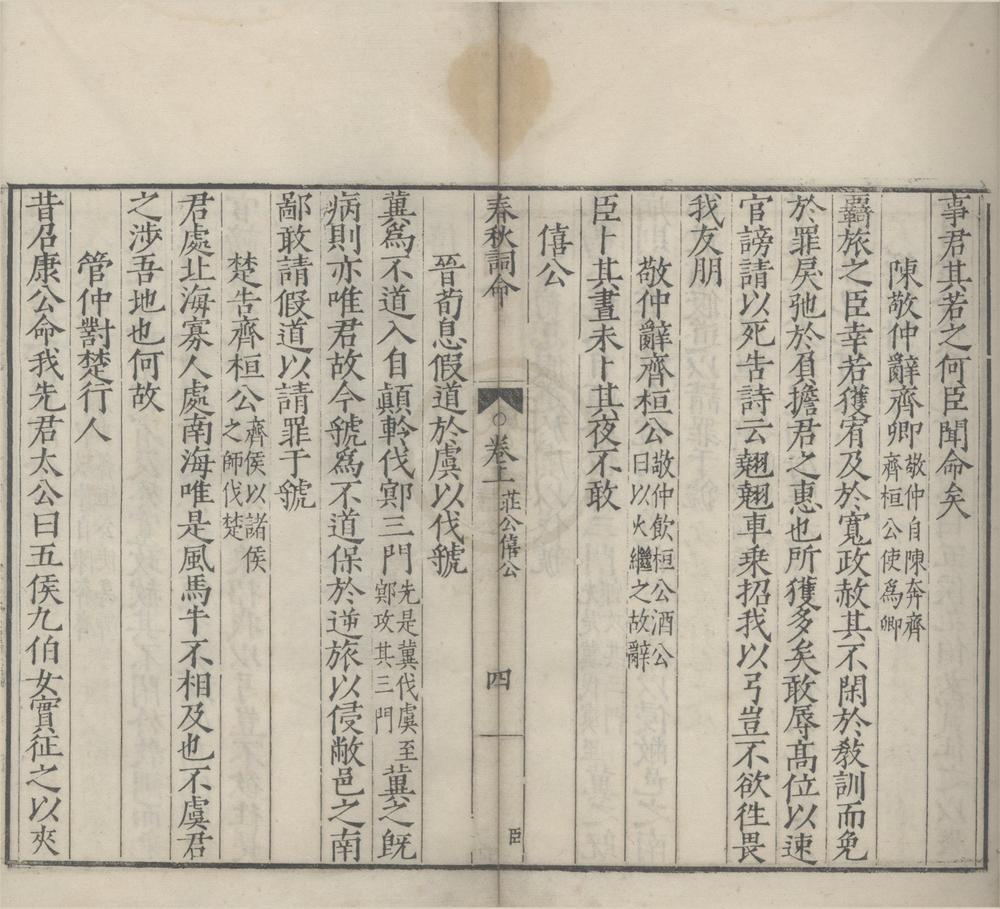 事君其若之何臣聞命矣
陳敬仲辭齊卿敬仲自陳奔齊齊桓公使爲卿
羇旅之臣幸若獲宥及於寬政赦其不閑於敎訓而免
於罪戾弛於負擔君之惠也所獲多矣敢辱高位以速
官謗請以死吿詩云翹翹車乗招我以弓豈不欲徃畏
我友朋
敬仲辭齊桓公敬仲飲桓公酒公曰以火繼之故辭
臣卜其晝未卜其夜不敢
僖公
春秋詞命 卷上 莊公僖公 四 臣
晉荀息假道於虞以伐虢
冀爲不道入自顚軨伐鄍三門先是冀伐虞至鄍攻其三門冀之旣
病則亦唯君故今虢爲不道保於逆旅以侵敝邑之南
鄙敢請假道以請罪于虢
楚吿齊桓公齊侯以諸侯之師伐楚
君處北海寡人處南海唯是風馬牛不相及也不虞君
之涉吾地也何故
管仲對楚行人
昔召康公命我先君太公曰五侯九伯女實征之以夾